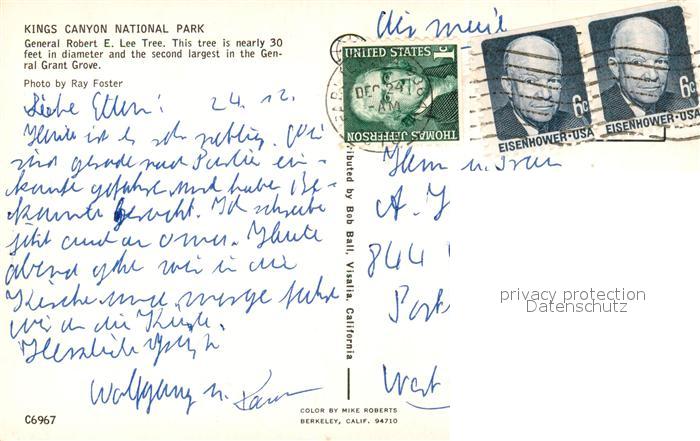 KINGS CANYON NATIONAL PARK
General Robert E. Lee Tree. This tree is nearly 30
feet in diameter and the second largest in the Gen-
ral Grant Grove.
Photo by Ray Foster
Liebe Eltern! 24. 12.
Heute ist es sehr neblig. Wir
sind gerade nach ein-
kaufen gefahren und haben Be-
kannte besucht. Ich schreibe
jetzt auch an Oma. Heute
abend gehe wir in die
Kirche und morge fahre
wir an die Küste.
Herzlich
Wolfgang u. Karin
C6967
Air mail
UNITED STATES
1c
THOMAS JEFFERSON
DEC 24
AM
6c
EISENHOWER·USA
6c
EISENHOWER·USA
ibuted by Bob Ball, Visalia, California
Herrn u. Frau
A. J
844
West
privacy protection
Datenschutz
COLOR BY MIKE ROBERTS
BERKELEY, CALIF. 94710